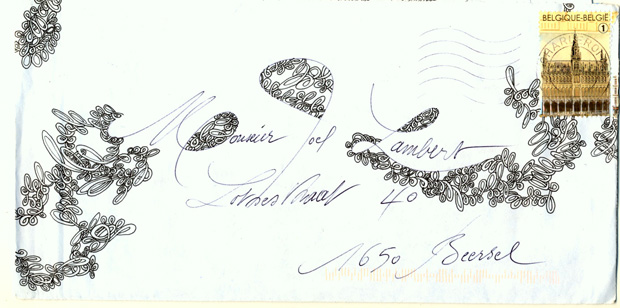 BELGIQUE-BELGIË
1
CHARLEROI
Monsieur Joel Lambert
40
1650 Beersel